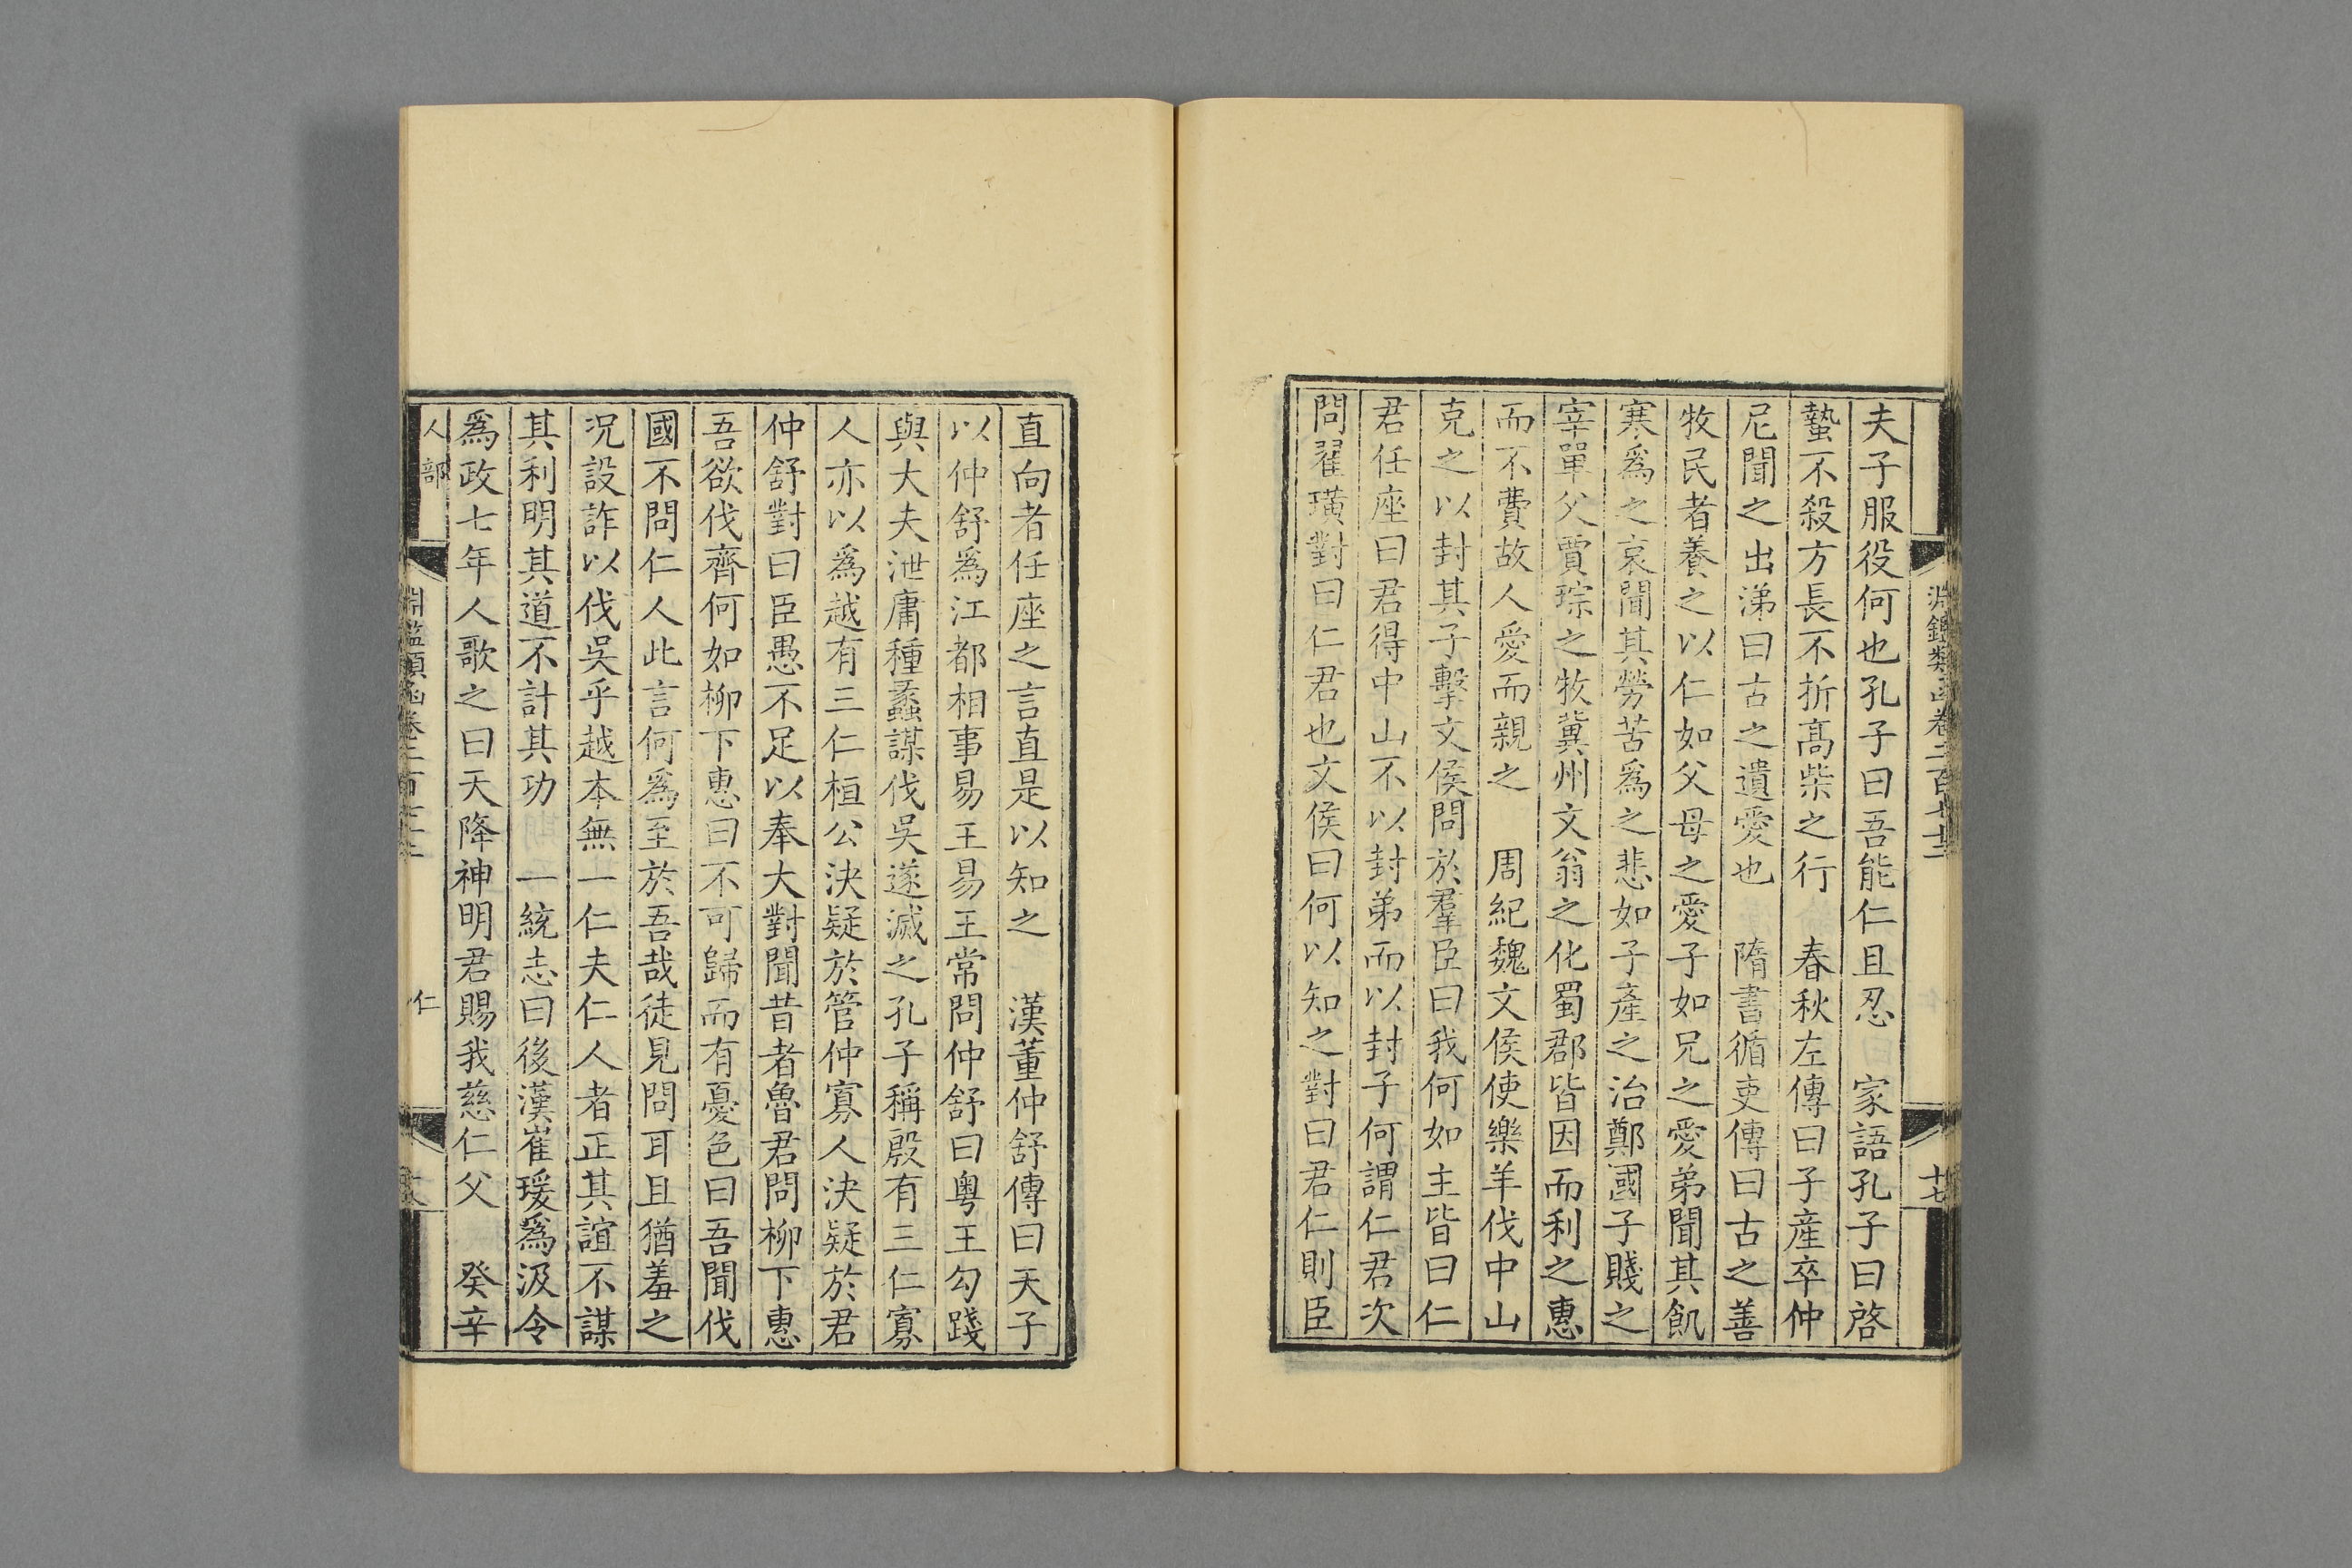 淵鑑類函卷二百七十三
十七
夫子服役何也孔子曰吾能仁且忍　家語孔子曰啓
蟄不殺方長不折髙柴之行　春秋左傳曰子產卒仲
尼聞之出涕曰古之遺愛也　隋書循吏傳曰古之善
牧民者養之以仁如父母之愛子如兄之愛弟聞其飢
寒爲之哀聞其勞苦爲之悲如子產之治鄭國子賤之
宰單父賈琮之牧冀州文翁之化蜀郡皆因而利之惠
而不費故人愛而親之　周紀魏文侯使樂羊伐中山
克之以封其子擊文侯問於羣臣曰我何如主皆曰仁
君任座曰君得中山不以封弟而以封子何謂仁君次
問翟璜對曰仁君也文侯曰何以知之對曰君仁則臣
直向者任座之言直是以知之　漢董仲舒傳曰天子
以仲舒爲江都相事易王易王常問仲舒曰粤王勾踐
與大夫泄庸種蠡謀伐吳遂滅之孔子稱殷有三仁寡
人亦以爲越有三仁桓公決疑於管仲寡人決疑於君
仲舒對曰臣愚不足以奉大對聞昔者魯君問柳下惠
吾欲伐齊何如柳下惠曰不可歸而有憂色曰吾聞伐
國不問仁人此言何爲至於吾哉徒見問耳且猶羞之
況設詐以伐吳乎越本無一仁夫仁人者正其誼不謀
其利明其道不計其功　一統志曰後漢崔瑗爲汲令
爲政七年人歌之曰天降神明君賜我慈仁父　癸辛
人部
淵鑑類函卷二百七十三
仁